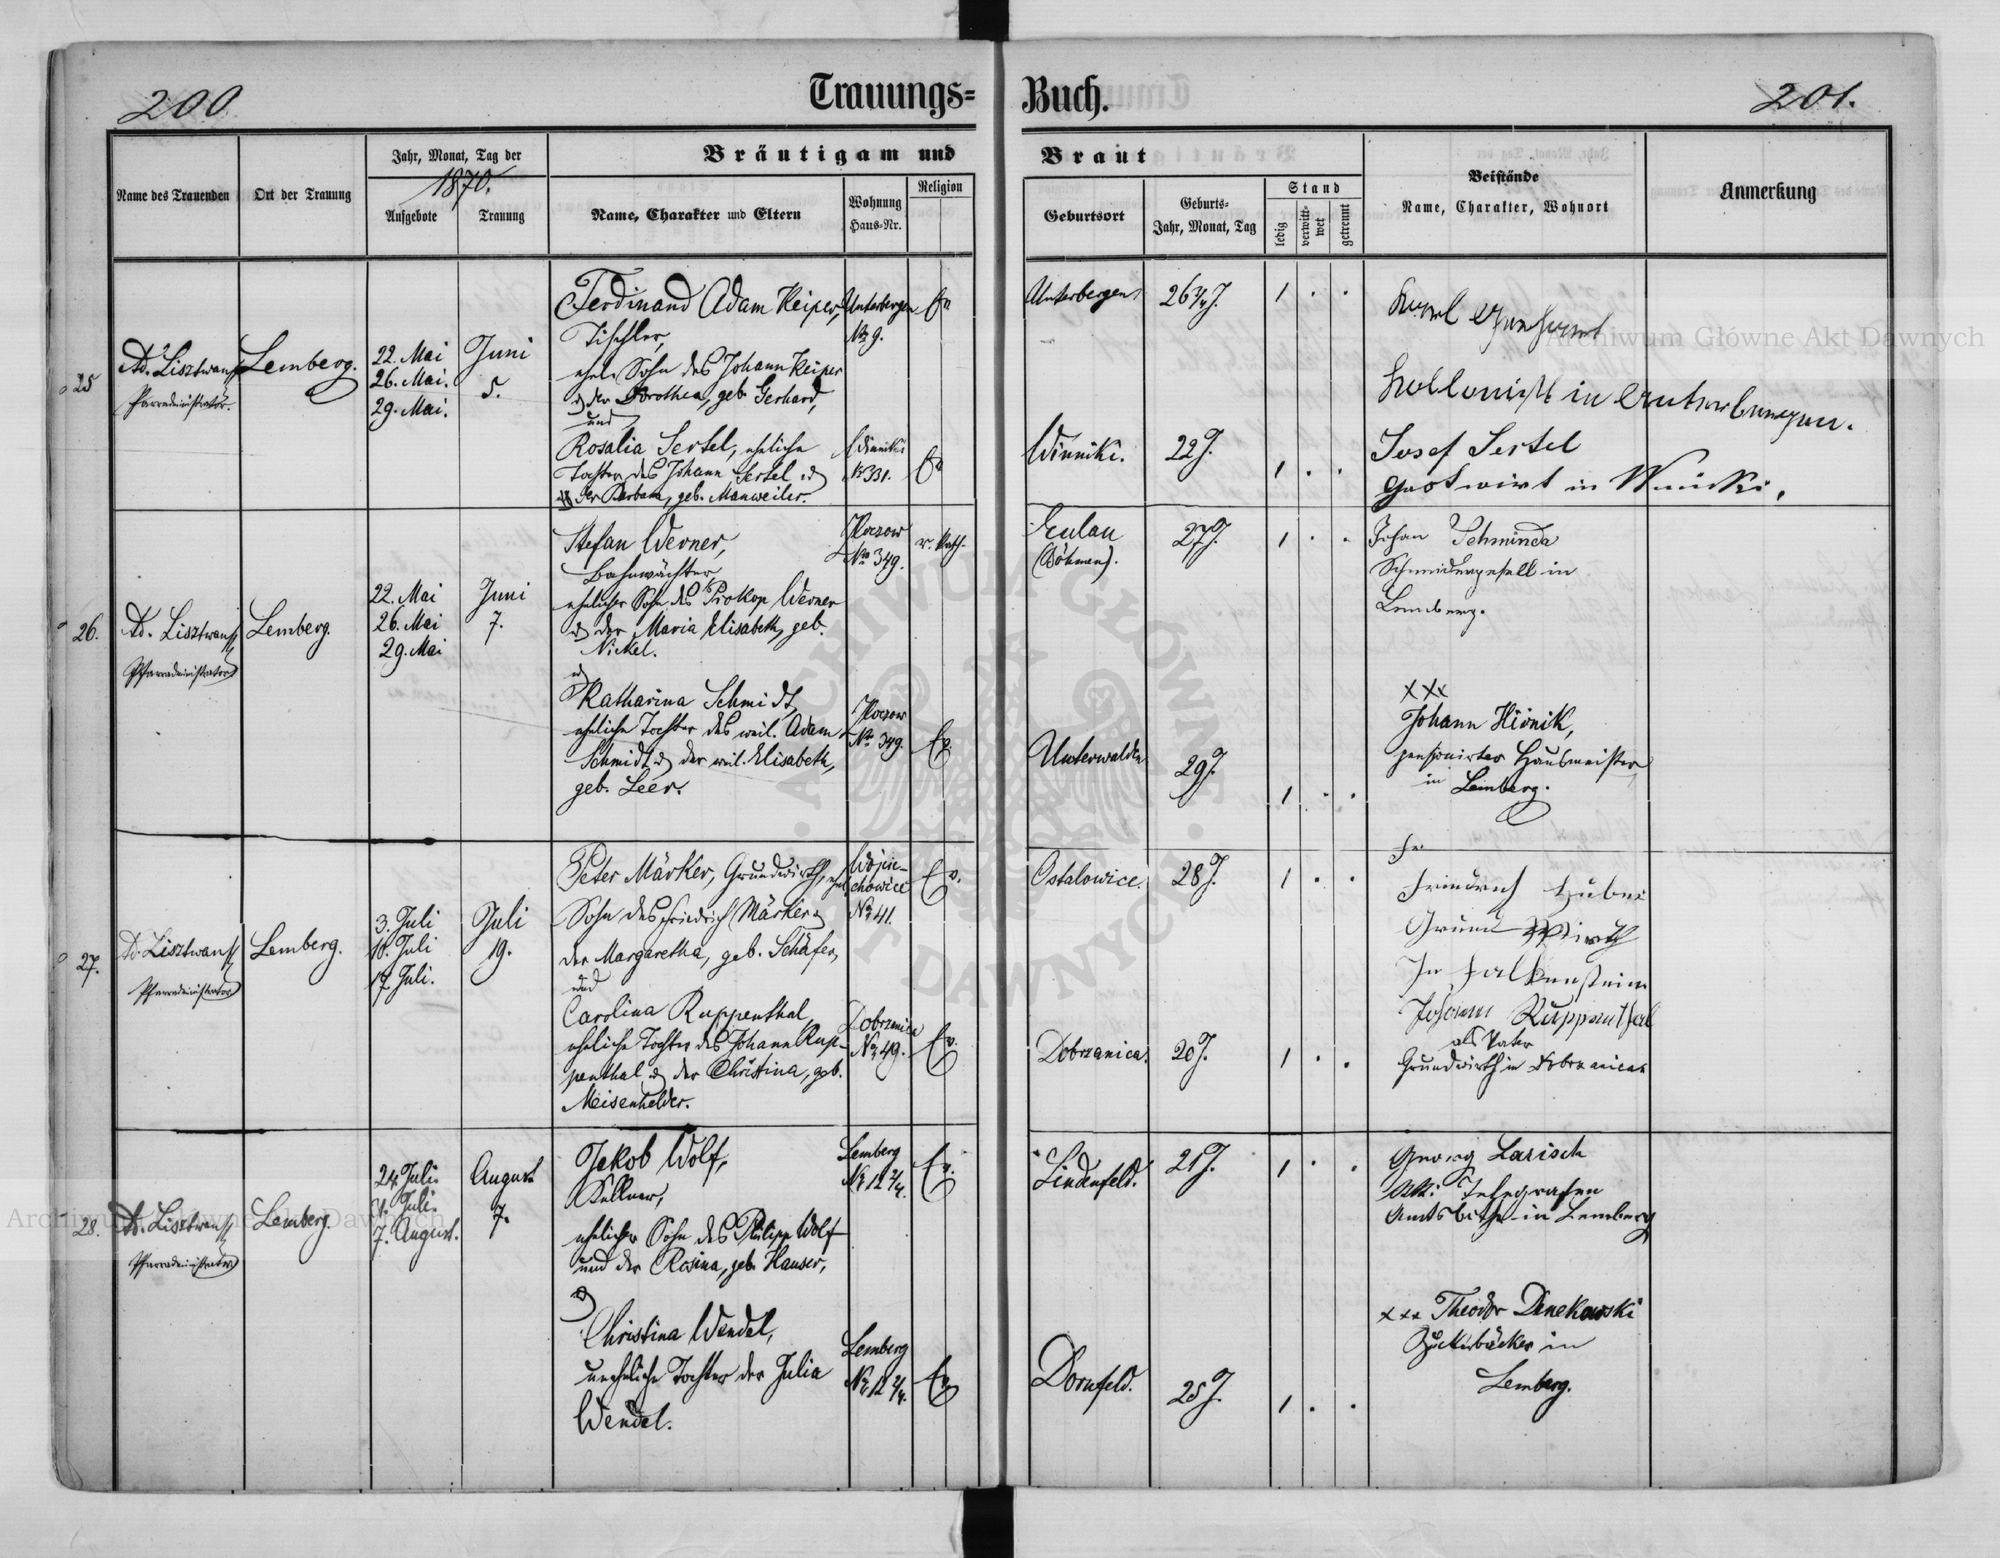 200.
Trauungs=
Buch.
201.
Name des Trauenden
Ort der Trauung
Jahr, Monat, Tag der
1870.
Aufgebote
Trauung
Bräutigam und
Name, Charakter und Eltern
Wohnung
Haus=Nr.
Religion
Braut
Geburtsort
Geburts=
Jahr, Monat, Tag
Stand
ledig
verwitt=
wet
getrennt
Beistände
Name, Charakter, Wohnort
Anmerkung
25
Ad. Lisztwan
Pfarradministrator.
Lemberg.
22. Mai
26. Mai.
29. Mai.
Juni
5.
Ferdinand Adam Keiper,
Tischler,
ehel. Sohn des Johann Keiper
& der Dorothea, geb. Gerhard,
und
Rosalia Sertel, eheliche
Tochter des Johann Sertel &
der Barbara, geb. Manweiler.
Unterbergen
No 9.
Ev
Winniki
No 331.
Ev
Unterbergen
26 3/4 J.
1 . .
Karl Gerhard
Kollonist in Unterbergen.
Winniki.
22 J.
1 . .
Josef Sertel
Gastwirt in Winiki.
26.
Ad. Lisztwan
Pfarradministrator
Lemberg.
22. Mai
26. Mai
29. Mai
Juni
7.
Stefan Werner,
Bahnwächter
ehelicher Sohn des Prokop Werner
& der Maria Elisabeth, geb.
Nickel.
&
Katharina Schmidt,
eheliche Tochter des weil. Adam
Schmidt & der weil. Elisabeth,
geb. Leer.
No 349.
r. Kath.
No 349.
Ev.
Eulau
(Böhmen).
27 J.
1 . .
Johan Schminda
Schneidergesell in
Lemberg.
Unterwalden
29 J.
1 . .
xxx
Johann Hionik,
pensionirter Hausmeister
in Lemberg.
27.
Ad. Lisztwan
Pfarradministrator
Lemberg.
3. Juli
10. Juli
17. Juli.
Juli
19.
Peter Märker, Grundwirth, ehel.
Sohn des Friedrich Märker &
der Margaretha, geb. Schäfer,
und
Carolina Ruppenthal
eheliche Tochter des Johann Rup=
penthal & der Christina, geb.
Meisenhelder.
Wojcie=
chowice
No 41.
Ev.
Dobrzanica
No 49.
Ev.
Ostalowice.
28 J.
1 . .
Friedrich Huber
Grund Wirth
In Falkenstein
Johann Ruppenthal
als Vater
Grundwirth in Dobrzanica
Dobrzanica.
20 J.
1 . .
28.
Ad. Lisztwan
Pfarradministrator
Lemberg.
24. Juli.
31. Juli.
7. August.
August
7.
Jakob Wolf,
Kellner,
ehelicher Sohn des Philipp Wolf
und der Rosina, geb. Hauser,
&
Christina Wendel,
uneheliche Tochter der Julia
Wendel.
Lemberg
No 12 2/4.
Ev.
Lemberg
No 12 2/4.
Ev
Lindenfeld.
21 J.
1 . .
Georg Larisch
Telegrafen
in Lemberg
Dornfeld.
25 J.
1 . .
xxx Theodor Dinekowski
Zuckerbäcker in
Lemberg.
Archiwum Główne Akt Dawnych
Archiwum Główne Akt Dawnych
ARCHIWUM GŁÓWNE AKT DAWNYCH